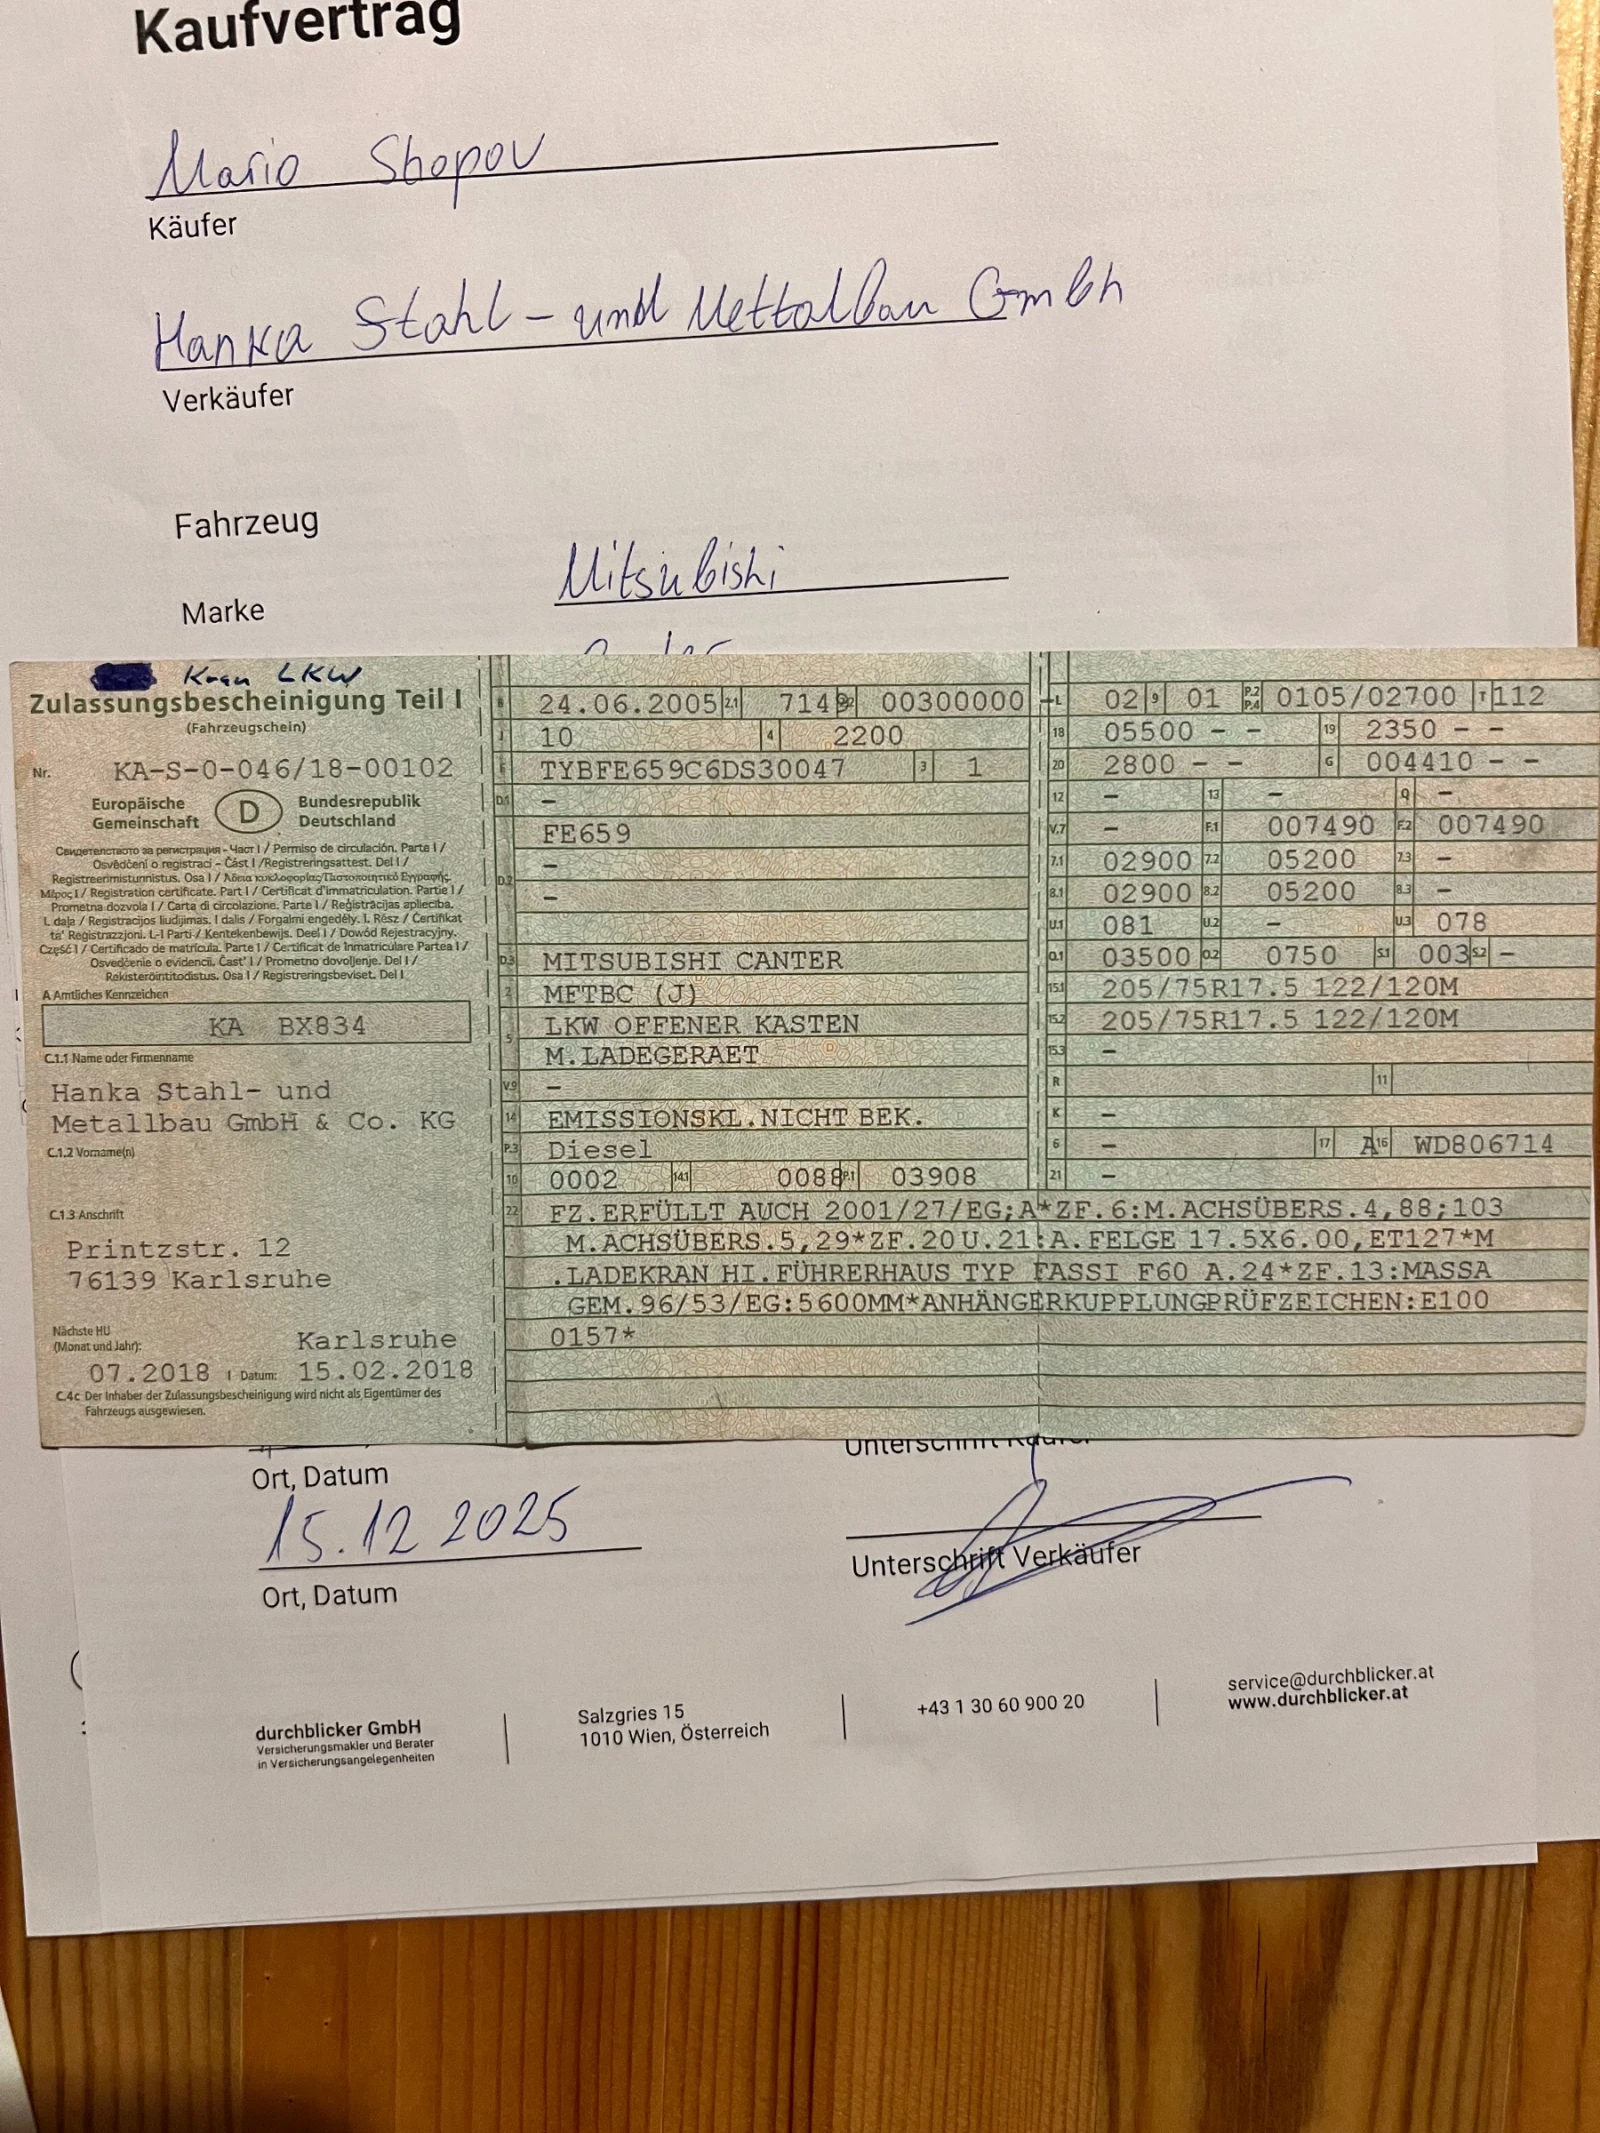 Kaufvertrag
Mario Shopov
Käufer
Hanka Stahl - und Mettalbau Gmbh
Verkäufer
Fahrzeug
Marke Mitsubishi
Kran LKW
Zulassungsbescheinigung Teil I
(Fahrzeugschein)
Nr. KA-S-0-046/18-00102
Europäische Gemeinschaft D Bundesrepublik Deutschland
Свидетелството за регистрация - Част I / Permiso de circulación. Parte I /
Osvědčení o registraci - Část I /Registreringsattest. Del I /
Registreerimistunnistus. Osa I / Άδεια κυκλοφορίας/Πιστοποιητικό Εγγραφής.
Μέρος I / Registration certificate. Part I / Certificat d'immatriculation. Partie I /
Prometna dozvola I / Carta di circolazione. Parte I / Reģistrācijas apliecība.
I. daļa / Registracijos liudijimas. I dalis / Forgalmi engedély. I. Rész / Ċertifikat
ta' Reġistrazzjoni. L-I Parti / Kentekenbewijs. Deel I / Dowód Rejestracyjny.
Część I / Certificado de matrícula. Parte I / Certificat de înmatriculare Partea I /
Osvedčenie o evidencii. Časť I / Prometno dovoljenje. Del I /
Rekisteröintitodistus. Osa I / Registreringsbeviset. Del I
A Amtliches Kennzeichen
KA BX834
C.1.1 Name oder Firmenname
Hanka Stahl- und
Metallbau GmbH & Co. KG
C.1.2 Vorname(n)
C.1.3 Anschrift
Printzstr. 12
76139 Karlsruhe
Nächste HU
(Monat und Jahr): Karlsruhe
07.2018 I Datum: 15.02.2018
C.4c Der Inhaber der Zulassungsbescheinigung wird nicht als Eigentümer des
Fahrzeugs ausgewiesen.
B 24.06.2005 2.1 7148 2.2 00300000
J 10 4 2200
E TYBFE659C6DS30047 3 1
D.1 -
FE659
D.2 -
-
D.3 MITSUBISHI CANTER
2 METBC (J)
5 LKW OFFENER KASTEN
M.LADEGERAET
V.9 -
14 EMISSIONSKL.NICHT BEK.
P.3 Diesel
10 0002 14.1 0088 P.1 03908
L 02 9 01 P.2 P.4 0105/02700 T 112
18 05500 - - 19 2350 - -
20 2800 - - G 004410 - -
12 - 13 - Q -
V.7 - F.1 007490 F.2 007490
7.1 02900 7.2 05200 7.3 -
8.1 02900 8.2 05200 8.3 -
U.1 081 U.2 - U.3 078
O.1 03500 O.2 0750 S.1 003 S.2 -
15.1 205/75R17.5 122/120M
15.2 205/75R17.5 122/120M
15.3 -
R 11
K -
6 - 17 A 16 WD806714
21 -
22 FZ.ERFÜLLT AUCH 2001/27/EG;A*ZF.6:M.ACHSÜBERS.4,88;103
M.ACHSÜBERS.5,29*ZF.20U.21:A.FELGE 17.5X6.00,ET127*M
.LADEKRAN HI.FÜHRERHAUS TYP FASSI F60 A.24*ZF.13:MASSA
GEM.96/53/EG:5600MM*ANHÄNGERKUPPLUNGPRÜFZEICHEN:E100
0157*
Unterschrift Käufer
Ort, Datum
15.12 2025
Unterschrift Verkäufer
Ort, Datum
durchblicker GmbH
Versicherungsmakler und Berater
in Versicherungsangelegenheiten
Salzgries 15
1010 Wien, Österreich
+43 1 30 60 900 20
service@durchblicker.at
www.durchblicker.at